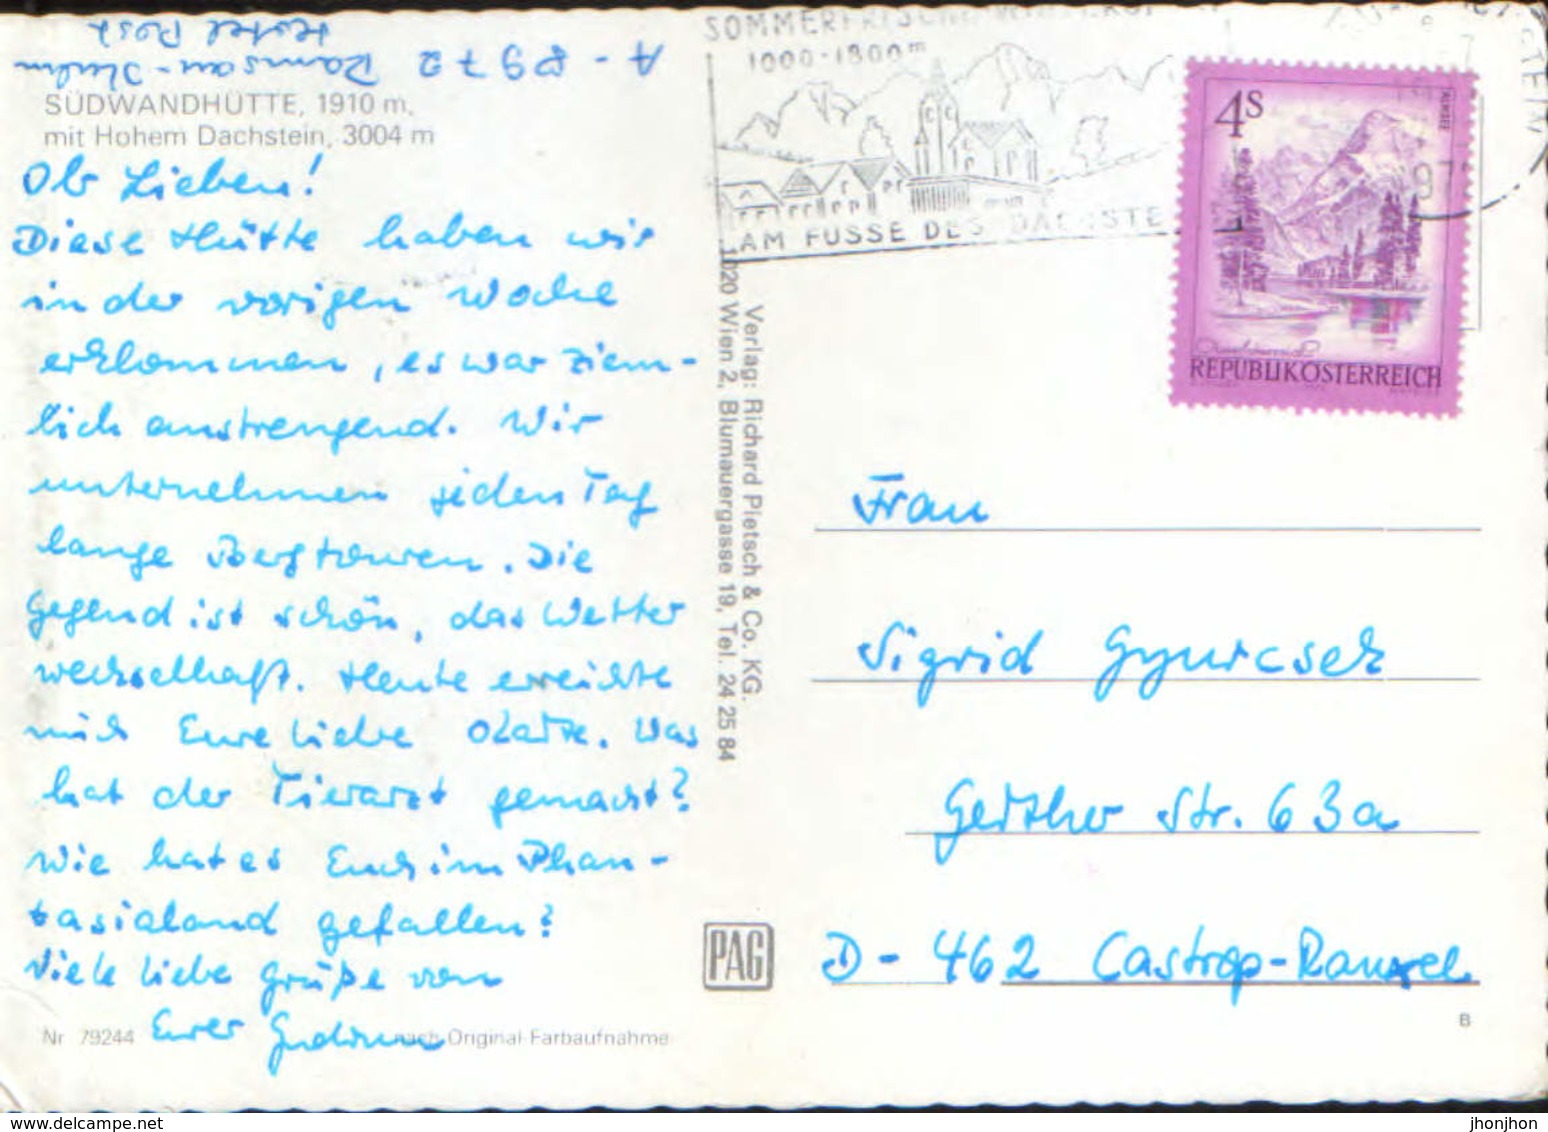 A-8972 Ramsau-Kulm
Hotel Post
SÜDWANDHÜTTE, 1910 m,
mit Hohem Dachstein, 3004 m
Ihr Lieben!
Diese Hütte haben wir
in der vorigen Woche
erklommen, es war ziem-
lich anstrengend. Wir
unternehmen jeden Tag
lange Bergtouren. Die
Gegend ist schön, das Wetter
wechselhaft. Heute erreichte
mich Eure liebe Karte. Was
hat der Tierarzt gemacht?
Wie hat es Euch im Phan-
tasialand gefallen?
Viele liebe Grüße von
Eurer Gudrun
Nr 79244 nach Original-Farbaufnahme
Verlag: Richard Pietsch & Co. KG.
1020 Wien 2, Blumauergasse 19, Tel. 24 25 84
PAG
SOMMERFRISCHE
1000-1800m
AM FUSSE DES DACHSTE
4S
ALMSEE
REPUBLIK ÖSTERREICH
Frau
Sigrid Gyurcsek
Gerther Str. 63a
D-462 Castrop-Rauxel
B
www.delcampe.net
jhonjhon